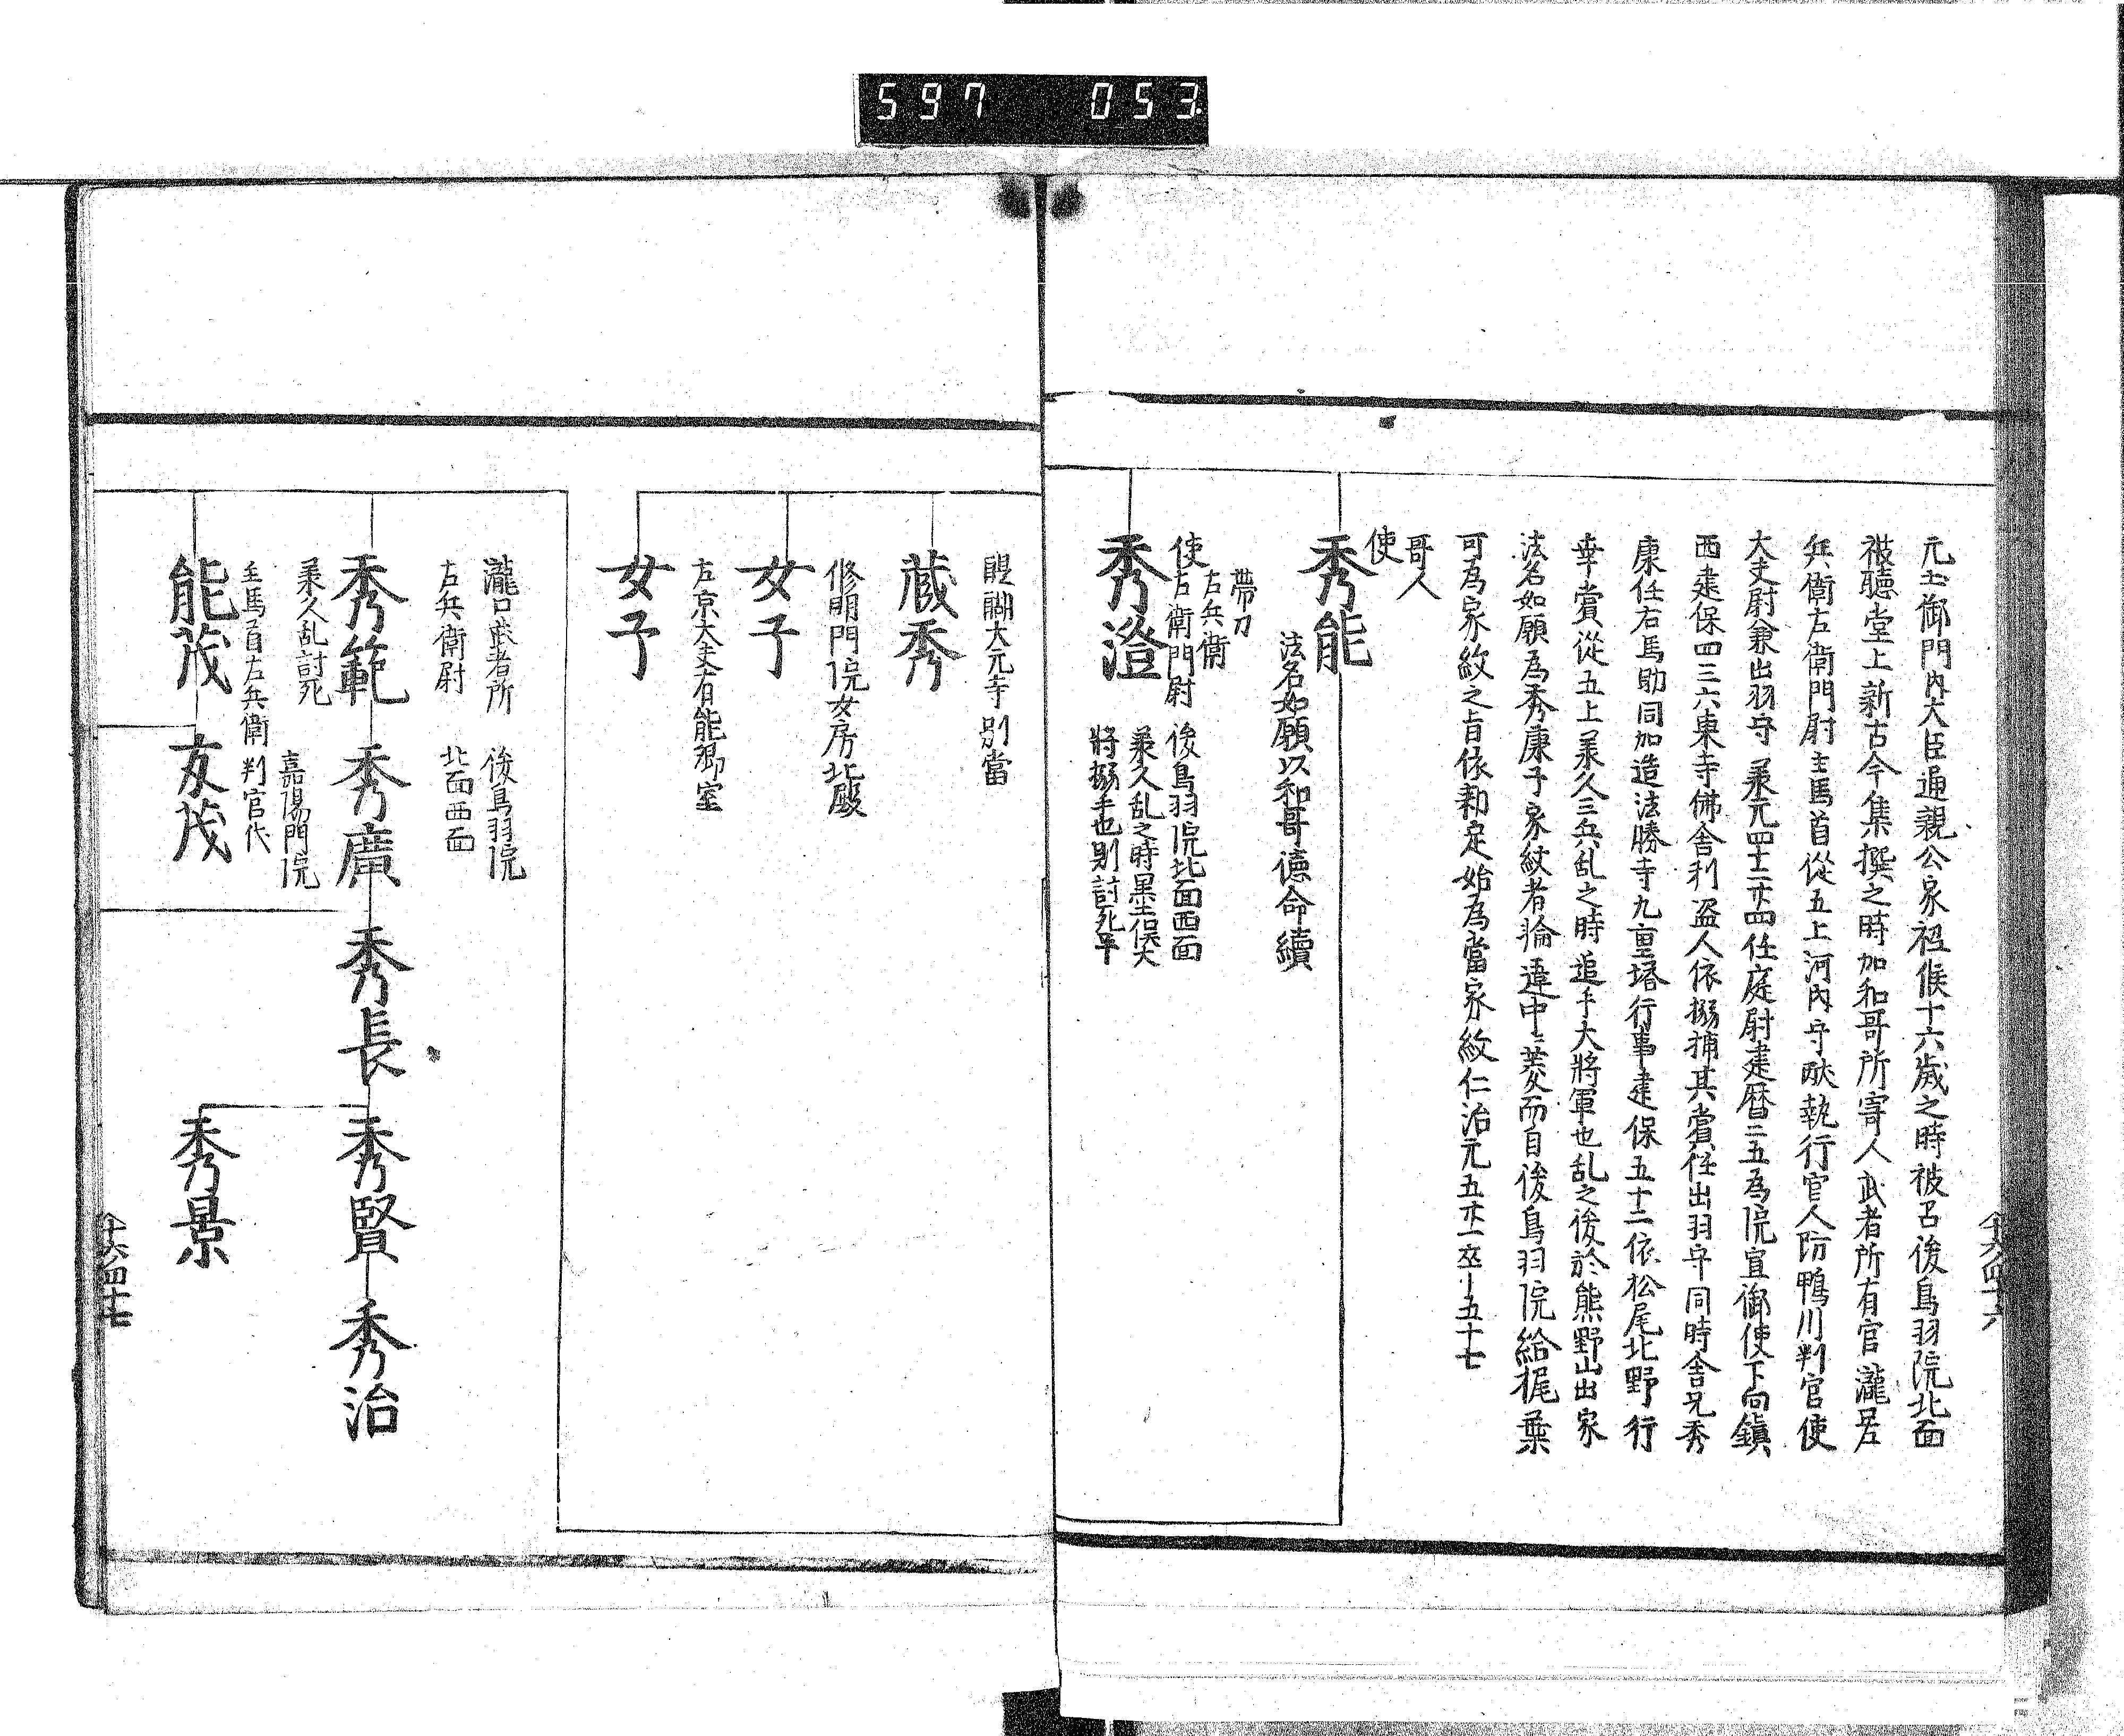 597 053
元土御門内大臣通親公家祗候十六歳之時被召後鳥羽院北面
被聴堂上新古今集撰之時加和哥所寄人武者所有官瀧口左
兵衛左衛門尉主馬首從五上河内守献執行官人防鴨川判官使
大夫尉兼出羽守兼元四十二廿四任庭尉建暦二五為院宣御使下向鎮
西建保四三六東寺佛舎利盗人依搦捕其賞任出羽守同時舎兄秀
康任右馬助同加造法勝寺九重塔行事建保五十二依松尾北野行
幸賞從五上兼久三兵乱之時追手大将軍也乱之後於熊野山出家
法名如願為秀康子家紋者輪違中ニ菱而自後鳥羽院給梶葉
可為家紋之旨依勅定始為當家紋仁治元五廿一卒ー五十七
哥人
使
秀能
法名如願以和哥德命續
帯刀
左兵衛
使左衛門尉
後鳥羽院北面西面
兼久乱之時墨俣大
将搦手也則討死畢
秀澄
醍醐大元寺別當
蔵秀
修明門院女房北殿
女子
左京大夫有能卿室
女子
瀧口武者所
左兵衛尉
後鳥羽院
北面西面
秀範
兼久乱討死
秀廣
秀長
秀賢
秀治
嘉陽門院
主馬首左兵衛判官代
能茂
友茂
秀景
十六ノ四十六
十六ノ四十七